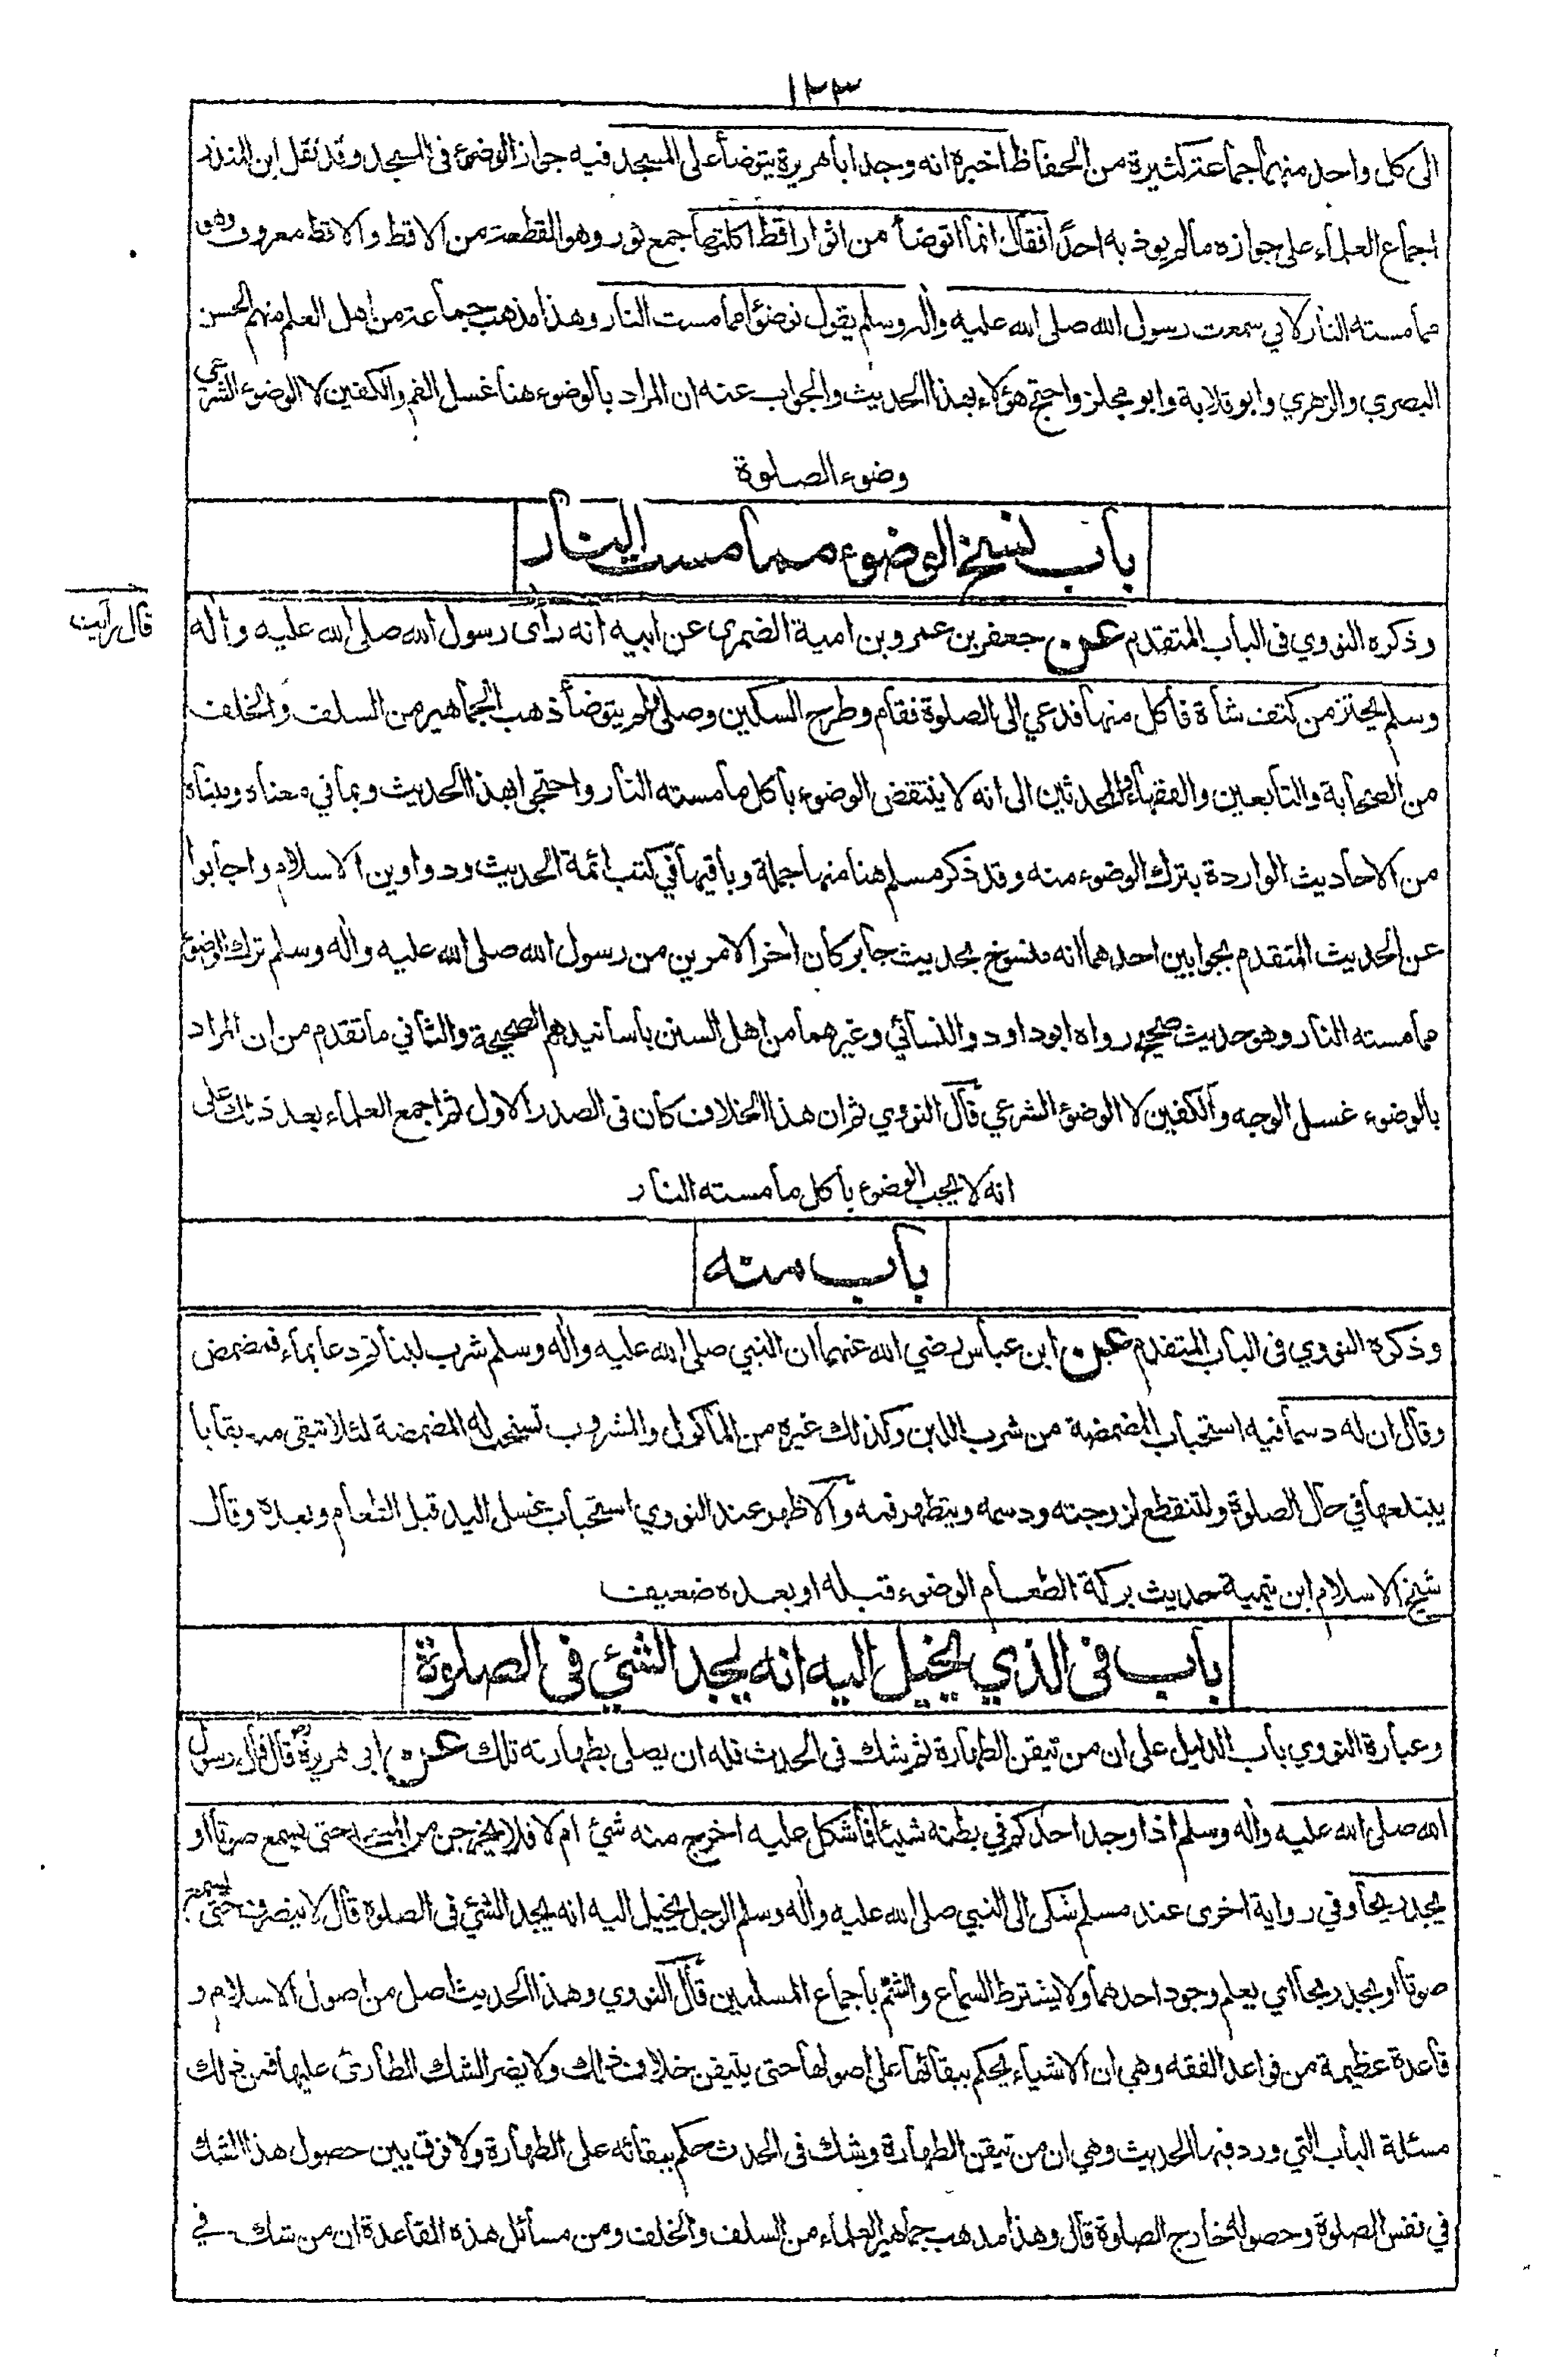 ١٢٣
الى كل واحد منهما جماعة كثيرة من الحفاظ اخبره انه وجد ابا هريرة يتوضأ على المسجد فيه جواز الوضوء فى المسجد وقد نقل ابن المنذر
اجماع العلماء على جوازه مالم يوذ به احدا فقال انما اتوضأ من اثوار اقط اكلتها جمع ثور وهو القطعة من الاقط والاقط معروف وهو
مما مسته النار لاني سمعت رسول الله صلى الله عليه واله وسلم يقول توضئوا مما مست النار وهذا مذهب جماعة من اهل العلم منهم الحسن
البصري والزهري وابو قلابة وابو مجلز واحتج هؤلاء بهذا الحديث والجواب عنه ان المراد بالوضوء هنا غسل الفم والكفين لا الوضوء الشرعي
وضوء الصلوة
باب نسخ الوضوء مما مست النار
وذكره النووي فى الباب المتقدم عن جعفر بن عمرو بن امية الضمري عن ابيه انه رأى رسول الله صلى الله عليه واله
قال رأيت
وسلم يحتز من كتف شاة فاكل منها فدعي الى الصلوة فقام وطرح السكين وصلى ولم يتوضأ ذهب الجماهير من السلف والخلف
من الصحابة والتابعين والفقهاء والمحدثين الى انه لا ينتقض الوضوء باكل ما مسته النار واحتجوا بهذا الحديث وبما في معناه ومبناه
من الاحاديث الواردة بترك الوضوء منه وقد ذكر مسلم هنا منها جملة وباقيها في كتب ائمة الحديث ودواوين الاسلام واجابوا
عن الحديث المتقدم بجوابين احدهما انه منسوخ بحديث جابر كان اخر الامرين من رسول الله صلى الله عليه واله وسلم ترك الوضوء
مما مسته النار وهو حديث صحيح رواه ابو داود والنسائي وغيرهما من اهل السنن باسانيدهم الصحيحة والثاني ما تقدم من ان المراد
بالوضوء غسل الوجه والكفين لا الوضوء الشرعي قال النووي ثم ان هذا الخلاف كان فى الصدر الاول ثم اجمع العلماء بعد ذلك على
انه لا يجب الوضوء باكل ما مسته النار
باب منه
وذكره النووي فى الباب المتقدم عن ابن عباس رضي الله عنهما ان النبي صلى الله عليه واله وسلم شرب لبنا ثم دعا بماء فمضمض
وقال ان له دسما فيه استحباب المضمضة من شرب اللبن وكذلك غيره من المأكول والمشروب تستحب له المضمضة لئلا تبقى منه بقايا
يبتلعها في حال الصلوة ولتنقطع لزوجته ودسمه ويتطهر فمه والاظهر عند النووي استحباب غسل اليد قبل الطعام وبعده وقال
شيخ الاسلام ابن تيمية حديث بركة الطعام الوضوء قبله او بعده ضعيف
باب فى الذي يخيل اليه انه يجد الشئ فى الصلوة
وعبارة النووي باب الدليل على ان من تيقن الطهارة ثم شك فى الحدث فله ان يصلى بطهارته تلك عن ابى هريرة قال قال رسول
الله صلى الله عليه واله وسلم اذا وجد احدكم في بطنه شيئا فاشكل عليه اخرج منه شئ ام لا فلا يخرجن من المسجد حتى يسمع صوتا او
يجد ريحا وفي رواية اخرى عند مسلم شكى الى النبي صلى الله عليه واله وسلم الرجل يخيل اليه انه يجد الشئ فى الصلوة قال لا ينصرف حتى يسمع
صوتا او يجد ريحا اي يعلم وجود احدهما ولا يشترط السماع والشم باجماع المسلمين قال النووي وهذا الحديث اصل من اصول الاسلام و
قاعدة عظيمة من قواعد الفقه وهي ان الاشياء يحكم ببقائها على اصولها حتى يتيقن خلاف ذلك ولا يضر الشك الطارئ عليها فمن ذلك
مسئلة الباب التي ورد فيها الحديث وهي ان من تيقن الطهارة وشك فى الحدث حكم ببقائه على الطهارة ولا فرق بين حصول هذا الشك
في نفس الصلوة وحصوله خارج الصلوة قال وهذا مذهب جماهير العلماء من السلف والخلف ومن مسائل هذه القاعدة ان من شك في